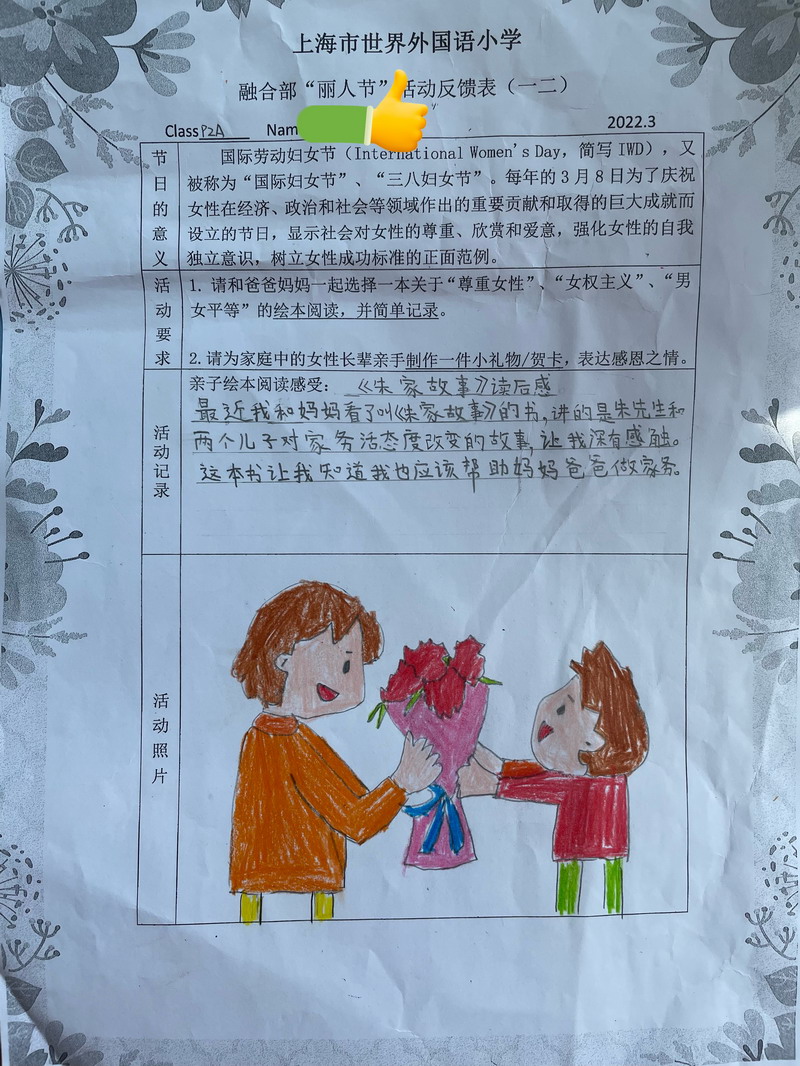 上海市世界外国语小学
融合部“丽人节”活动反馈表（一二）
Class P2A Nam 2022.3
节日的意义
国际劳动妇女节（International Women's Day，简写 IWD），又
被称为“国际妇女节”、“三八妇女节”。每年的 3 月 8 日为了庆祝
女性在经济、政治和社会等领域作出的重要贡献和取得的巨大成就而
设立的节日，显示社会对女性的尊重、欣赏和爱意，强化女性的自我
独立意识，树立女性成功标准的正面范例。
活动要求
1. 请和爸爸妈妈一起选择一本关于“尊重女性”、“女权主义”、“男
女平等”的绘本阅读，并简单记录。
2. 请为家庭中的女性长辈亲手制作一件小礼物/贺卡，表达感恩之情。
活动记录
亲子绘本阅读感受：《朱家故事》读后感
最近我和妈妈看了叫《朱家故事》的书，讲的是朱先生和
两个儿子对家务活态度改变的故事，让我深有感触。
这本书让我知道我也应该帮助妈妈爸爸做家务。
活动照片